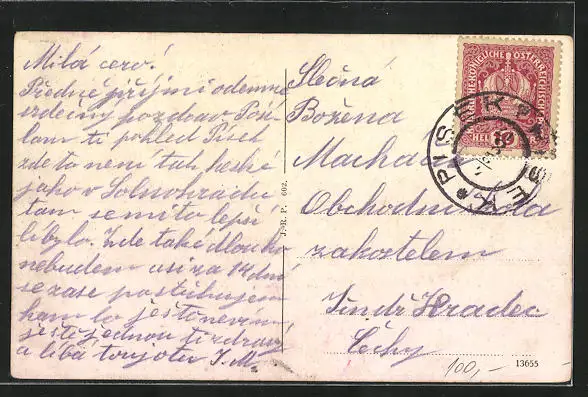 Milá cero!
Předně přijmi odemne
srdečny pozdrav Posí-
lam ti pohled Pisek
zde to neni tak heské
jako v Solnohradu
tam se mito lepší
libylo. Zde také dlouho
nebudem asi za 14 dní
se zase postěhujem
kam to ještě nevím
ještě jednou ti zdraví
a líbá tvoje 
J. M.
Slečná
Božena
Machač
Obchodni
za kostelem
Jindř Hradec
Čechy
J.-R. P. 602.
KAISERKÖNIGLICHE ÖSTERREICHISCHE
HELLER
PISEK
PISEK
100,-
13655